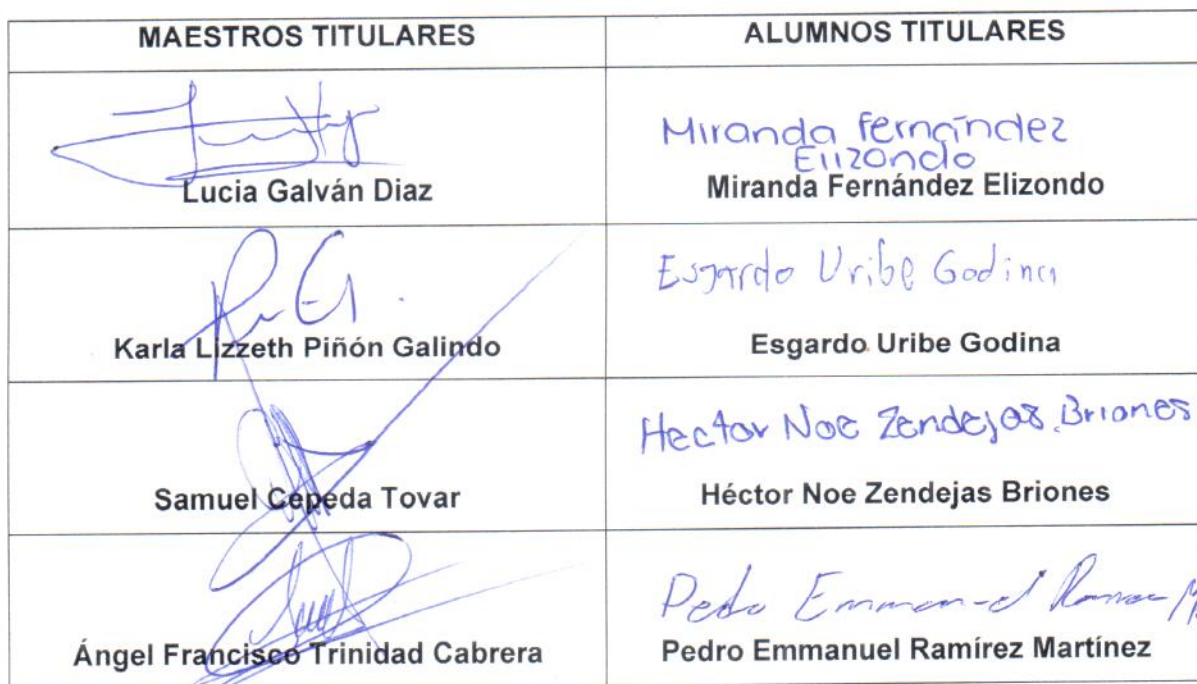 MAESTROS TITULARES
ALUMNOS TITULARES
Lucia Galván Diaz
Miranda Fernández
Elizondo
Miranda Fernández Elizondo
Karla Lizzeth Piñón Galindo
Esgardo Uribe Godina
Esgardo Uribe Godina
Samuel Cepeda Tovar
Hector Noe Zendejas Briones
Héctor Noe Zendejas Briones
Ángel Francisco Trinidad Cabrera
Pedro Emmanuel
Pedro Emmanuel Ramírez Martínez